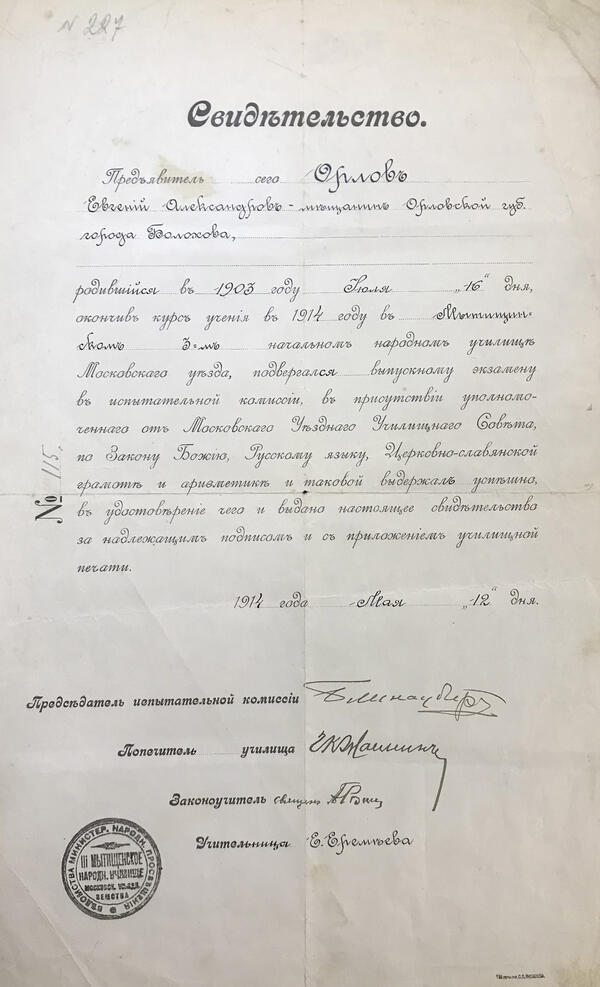 N 227
Свидѣтельство.
Предъявитель сего Орловъ
Евгеній Александровъ - мѣщанинъ Орловской губ.
города Болохова,
родившійся въ 1903 году Іюля „16" дня,
окончивъ курсъ ученія въ 1914 году въ Мытищин-
скомъ 3-мъ начальномъ народномъ училищѣ
Московскаго уѣзда, подвергался выпускному экзамену
въ испытательной комиссіи, въ присутствіи уполномо-
ченнаго отъ Московскаго Уѣзднаго Училищнаго Совѣта,
по Закону Божію, Русскому языку, Церковно-славянской
грамотѣ и ариѳметикѣ и таковой выдержалъ успѣшно,
въ удостовѣреніе чего и выдано настоящее свидѣтельство
за надлежащимъ подписомъ и съ приложеніемъ училищной
печати.
№ 115.
1914 года Мая „12" дня.
Предсѣдатель испытательной комиссіи
Попечитель училища
Законоучитель священ
Учительница Е. Еремѣева
ВѢДОМСТВА МИНИСТЕР. НАРОДН. ПРОСВѢЩЕНІЯ
III МЫТИЩЕНСКОЕ
НАРОДН. УЧИЛИЩЕ
МОСКОВСК. УѢЗДН.
ЗЕМСТВА